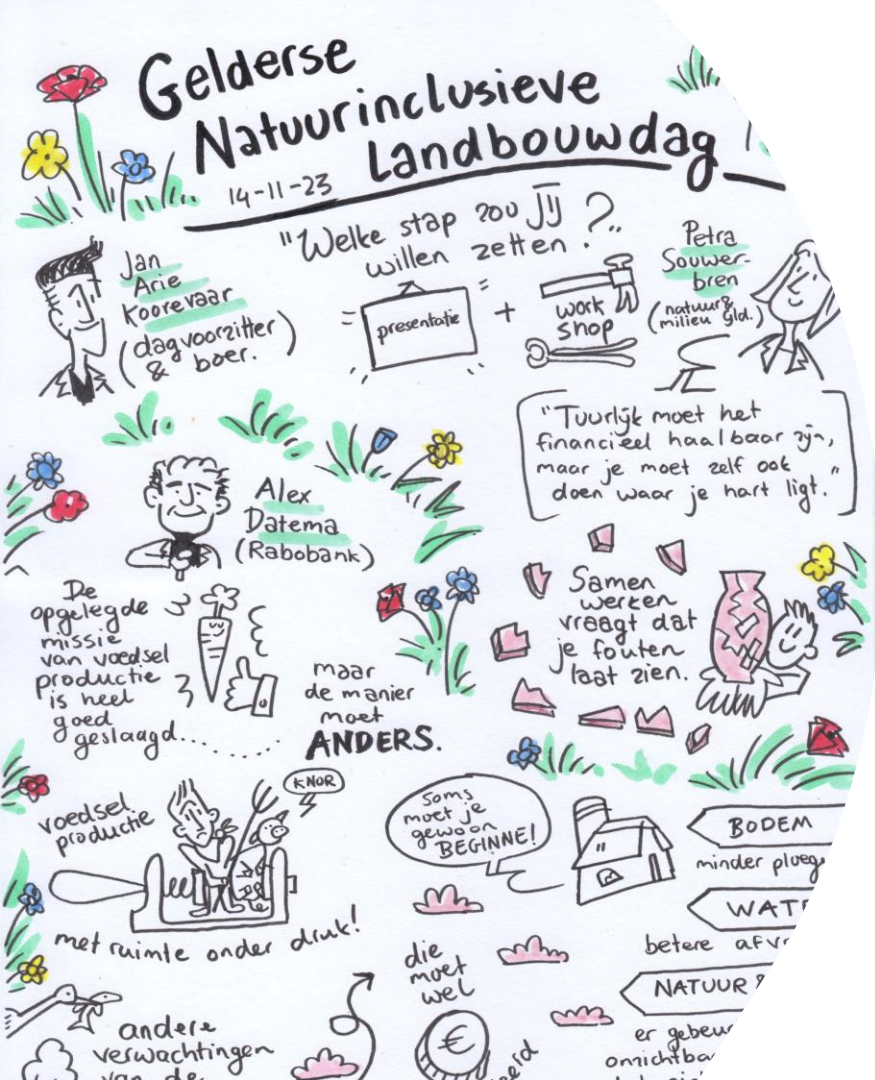 Gelderse
Natuurinclusieve
Landbouwdag
14-11-23
"Welke stap zou JIJ
willen zetten?"
Jan
Arie
Koorevaar
(dagvoorzitter
& boer.)
= presentatie +
work
shop
Petra
Souwer-
bren
(natuur &
milieu Gld.)
"Tuurlijk moet het
financieel haalbaar zijn,
maar je moet zelf ook
doen waar je hart ligt."
Alex
Datema
(Rabobank)
De
opgelegde
missie
van voedsel
productie
is heel
goed
geslaagd.......
maar
de manier
moet
ANDERS.
Samen
werken
vraagt dat
je fouten
laat zien.
voedsel
productie
KNOR
met ruimte onder druk!
Soms
moet je
gewoon
BEGINNE!
BODEM
minder
WAT
betere
NATUUR &
er
die
moet
wel
€
andere
verwachtingen
van de